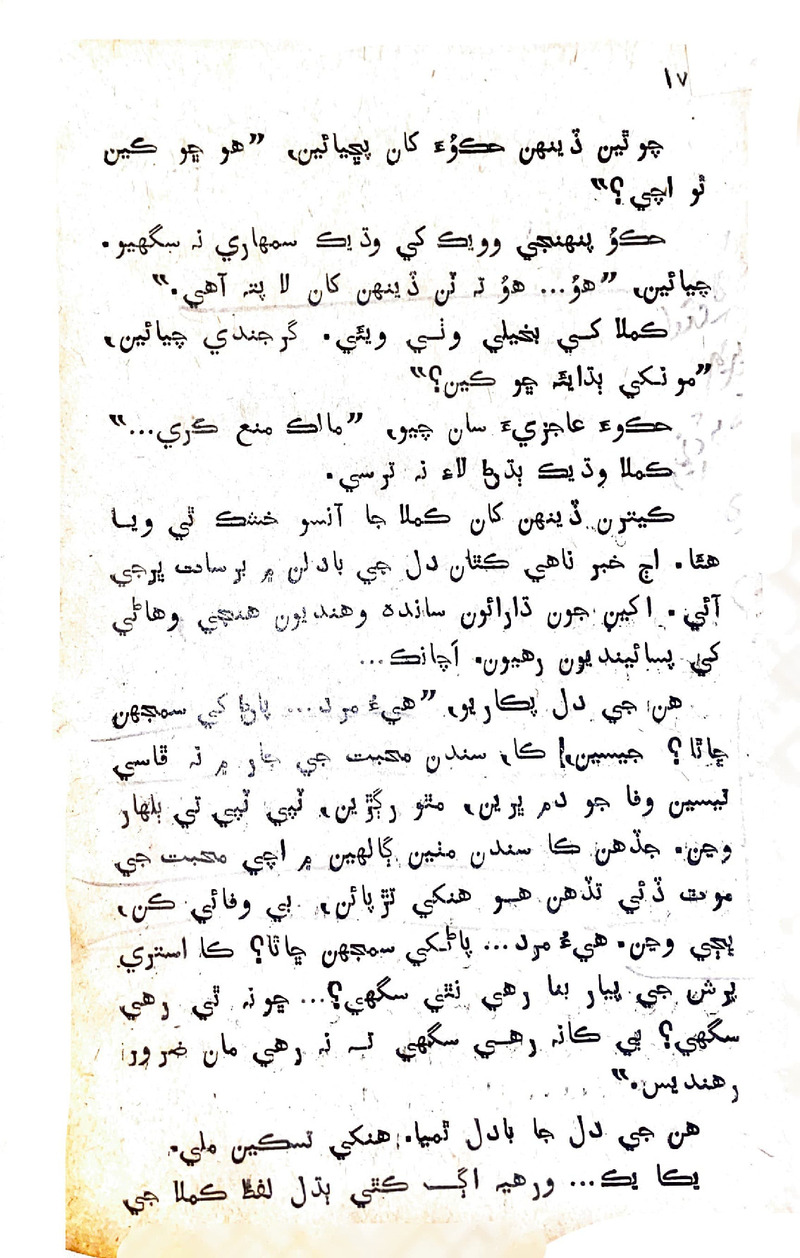 ١٧
چوٿين ڏينهن حڪوُءَ کان پڇيائين، ”هو ڇو ڪين
ٿو اچي؟“
حڪوُ پنهنجي وويڪ کي وڌيڪ سمهاري نہ سگهيو.
چيائين، ”هوُ... هوُ تہ ٽن ڏينهن کان لا پتہ آهي.“
ڪملا کـي بخيلي وٺـي ويئي. گرجندي چيائين،
”مونکي ٻڌايئہ ڇو ڪين؟“
حڪوءَ عاجزيءَ سان چيو، ”مالڪ منع ڪري...“
ڪملا وڌيڪ ٻڌڻ لاءِ نہ ترسي.
ڪيترن ڏينهن کان ڪملا جا آنسو خشڪ ٿي ويـا
هئا. اڄ خبر ناهي ڪٿان دل جي بادلن ۾ برسات ڀرجي
آئي. اکين جون ڌارائون ساندہ وهنديون هنجي وهاڻي
کي پسائينديون رهيون. اَچانڪ...
هن جي دل پڪاريو، ”هيءُ مرد... پاڻ کي سمجهن
ڇاٿا؟ جيسين، ڪا، سندن محبت جي ڄار ۾ نہ ڦاسي
تيسين وفا جو دم ڀرين، مٿو رڳڙين، ٽپي ٽپي تي ٻلهار
وڃن. جڏهن ڪا سندن مٺين ڳالهين ۾ اچي محبت جي
موٽ ڏئي تڏهن هـو هنکي تڙپائن، بي وفائي ڪن،
ڀڄي وڃن. هيءُ مرد... پاڻکي سمجهن ڇاٿا؟ ڪا استري
پرش جي پيار بنا رهي نٿي سگهي؟... ڇونہ ٿي رهي
سگهي؟ ٻي ڪانہ رهـي سگهي تـہ نہ رهي مان ضرور
رهنديس.“
هن جي دل جا بادل ٿميا. هنکي تسڪين ملي.
يڪا يڪ... ورهيہ اڳـ ڪٿي ٻڌل لفظ ڪملا جي